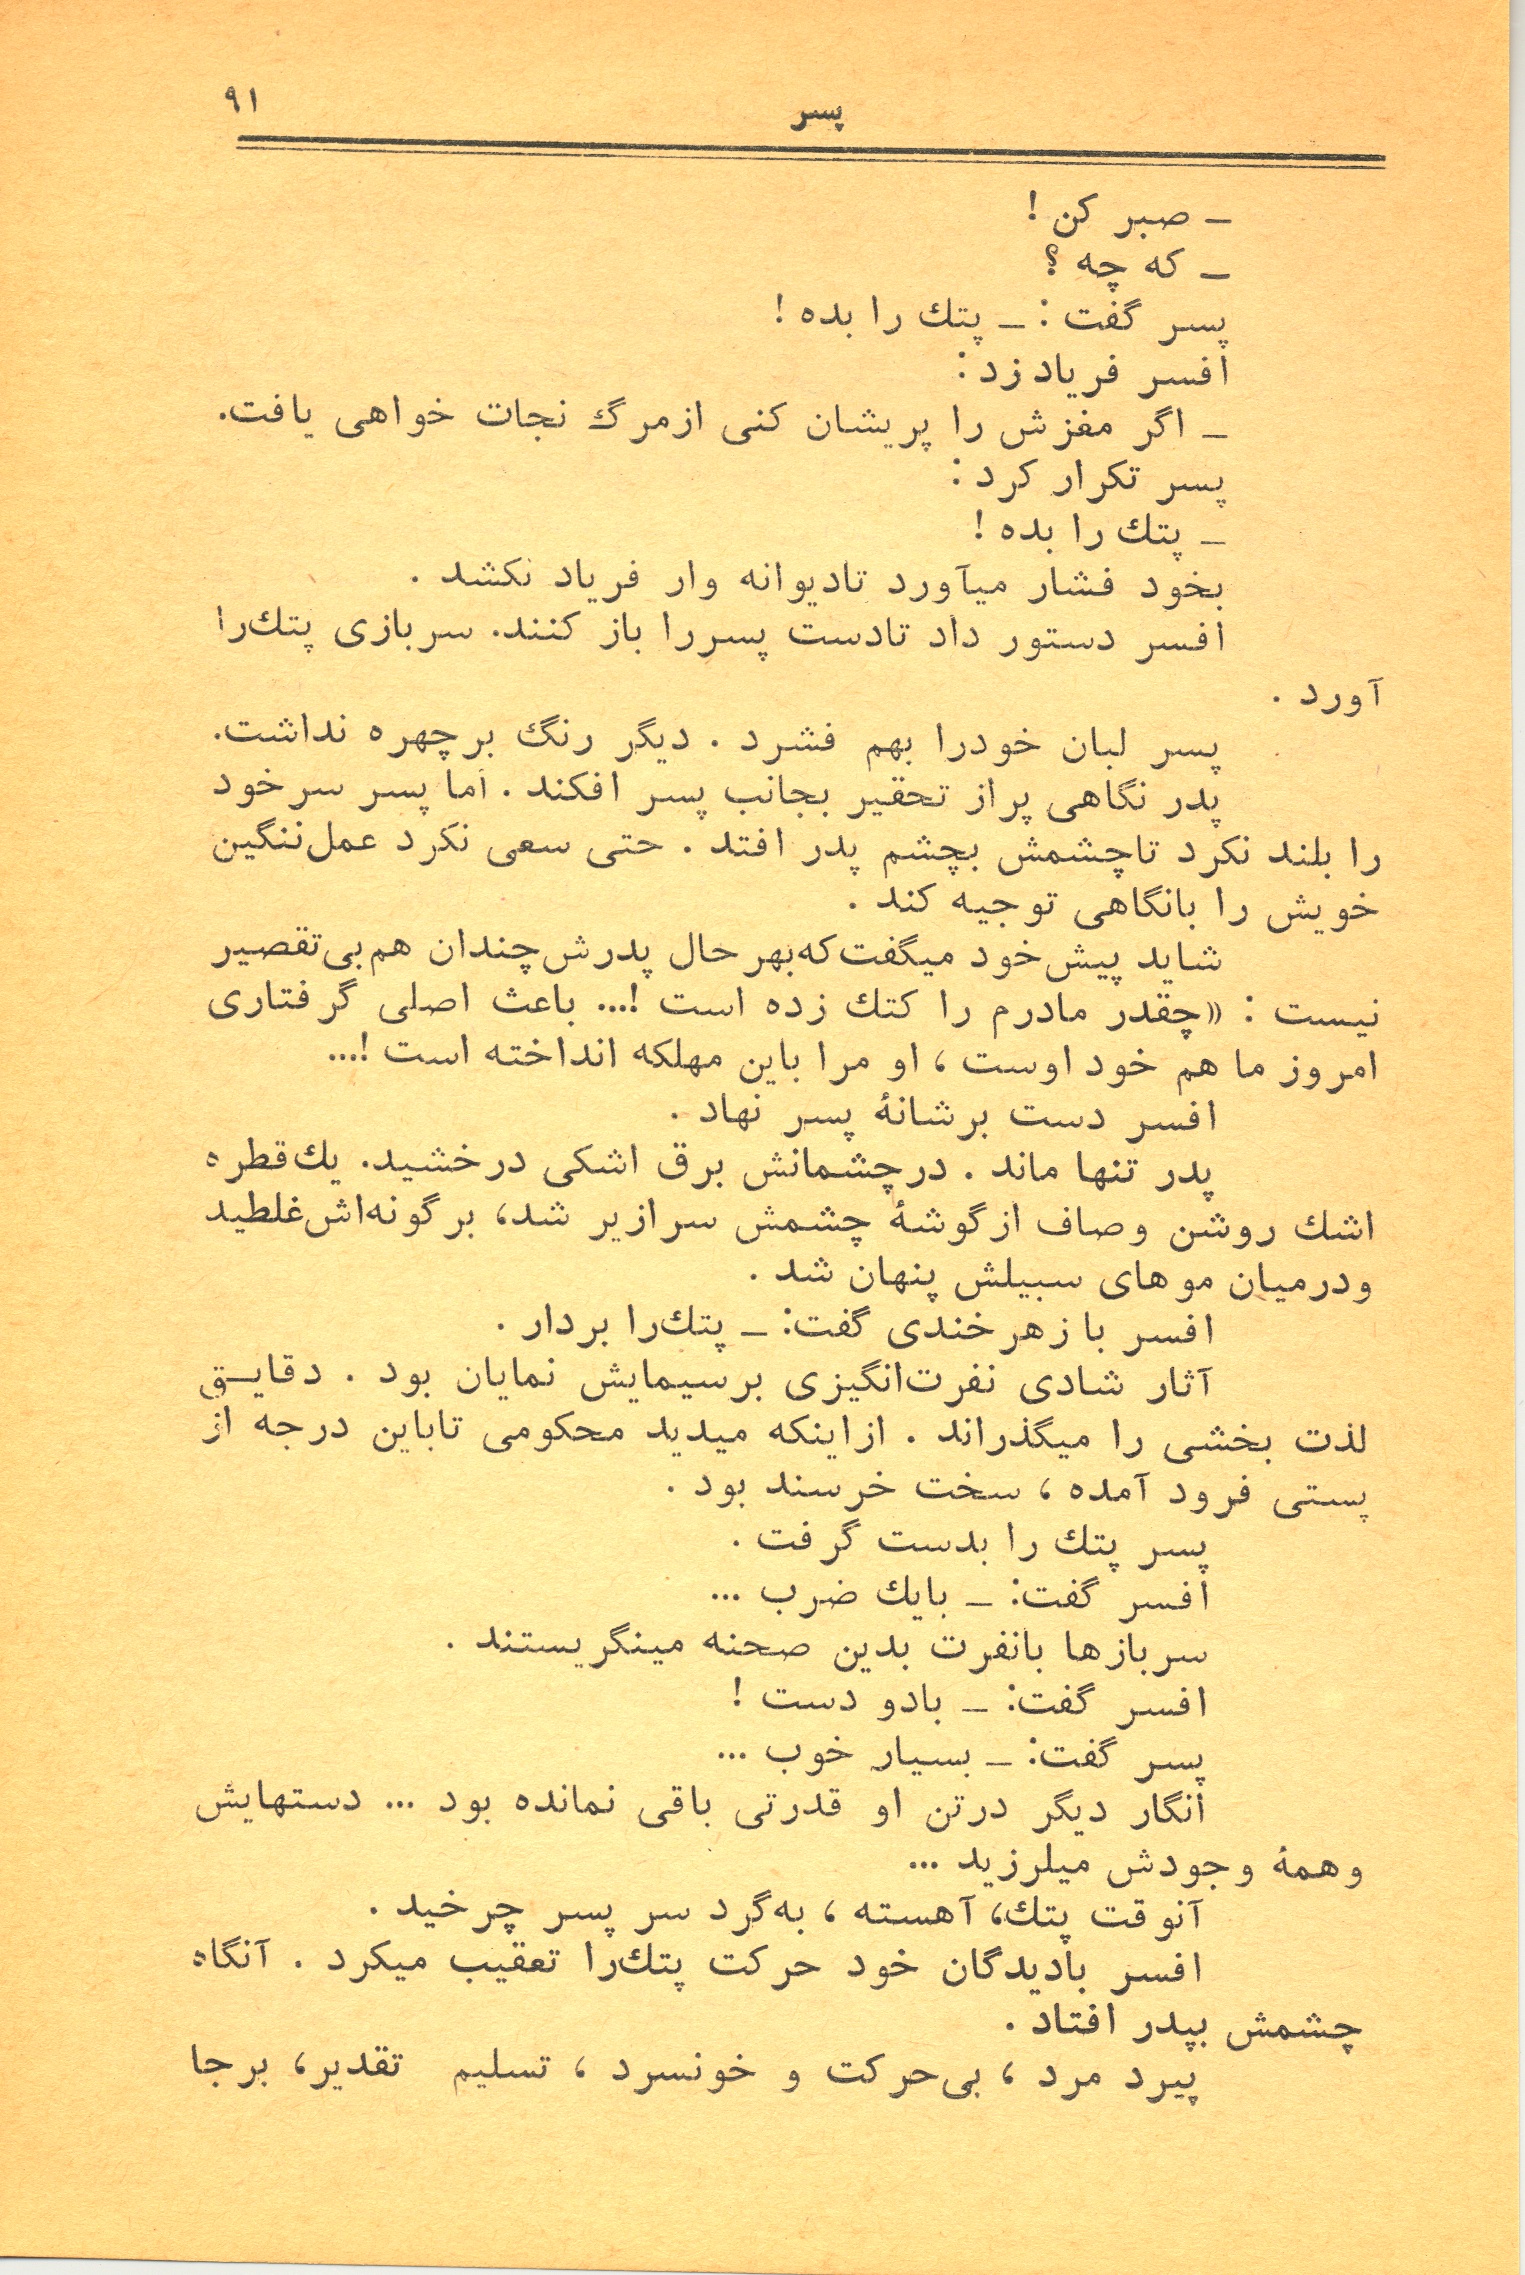 پسر
۹۱
ـ صبر کن !
ـ که چه ؟
پسر گفت : ـ پتك را بده !
افسر فریاد زد :
ـ اگر مغزش را پریشان کنی ازمرگ نجات خواهی یافت.
پسر تکرار کرد :
ـ پتك را بده !
بخود فشار میآورد تادیوانه وار فریاد نکشد .
افسر دستور داد تادست پسررا باز کنند. سربازی پتك‌را
آورد .
پسر لبان خودرا بهم فشرد . دیگر رنگ برچهره نداشت.
پدر نگاهی پراز تحقیر بجانب پسر افکند . اما پسر سرخود
را بلند نکرد تاچشمش بچشم پدر افتد . حتی سعی نکرد عمل‌ننگین
خویش را بانگاهی توجیه کند .
شاید پیش‌خود میگفت‌که‌بهرحال پدرش‌چندان هم‌بی‌تقصیر
نیست : «چقدر مادرم را کتك زده است !... باعث اصلی گرفتاری
امروز ما هم خود اوست ، او مرا باین مهلکه انداخته است !...
افسر دست برشانهٔ پسر نهاد .
پدر تنها ماند . درچشمانش برق اشکی درخشید. يك‌قطره
اشك روشن وصاف ازگوشهٔ چشمش سرازیر شد، برگونه‌اش‌غلطید
ودرمیان موهای سبیلش پنهان شد .
افسر با زهرخندی گفت: ـ پتك‌را بردار .
آثار شادی نفرت‌انگیزی برسیمایش نمایان بود . دقایـق
لذت بخشی را میگذراند . ازاینکه میدید محکومی تاباین درجه از
پستی فرود آمده ، سخت خرسند بود .
پسر پتك را بدست گرفت .
افسر گفت: ـ بايك ضرب ...
سربازها بانفرت بدین صحنه مینگریستند .
افسر گفت: ـ بادو دست !
پسر گفت: ـ بسیار خوب ...
انگار دیگر درتن او قدرتی باقی نمانده بود ... دستهایش
وهمهٔ وجودش میلرزید ...
آنوقت پتك، آهسته ، به‌گرد سر پسر چرخید .
افسر بادیدگان خود حرکت پتك‌را تعقیب میکرد . آنگاه
چشمش بپدر افتاد .
پیرد مرد ، بی‌حرکت و خونسرد ، تسلیم تقدیر، برجا